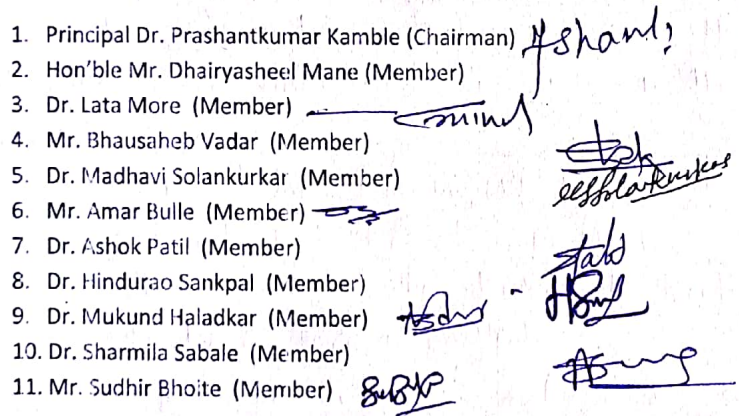 1. Principal Dr. Prashantkumar Kamble (Chairman)
2. Hon'ble Mr. Dhairyasheel Mane (Member)
3. Dr. Lata More (Member)
4. Mr. Bhausaheb Vadar (Member)
5. Dr. Madhavi Solankurkar (Member)
6. Mr. Amar Bulle (Member)
7. Dr. Ashok Patil (Member)
8. Dr. Hindurao Sankpal (Member)
9. Dr. Mukund Haladkar (Member)
10. Dr. Sharmila Sabale (Member)
11. Mr. Sudhir Bhoite (Member)